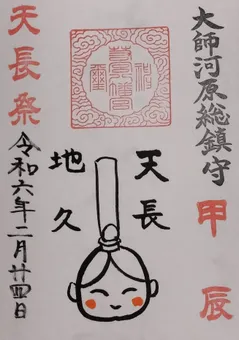 大師河原総鎮守
甲辰
天長
地久
天長祭
令和六年二月廿四日